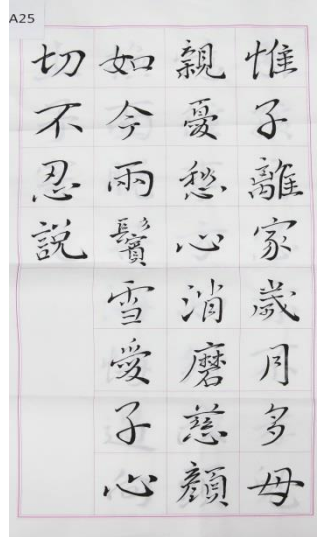 A25
惟子離家歲月多母
親憂愁心消磨慈顏
如今兩鬢雪愛子心
切不忍說